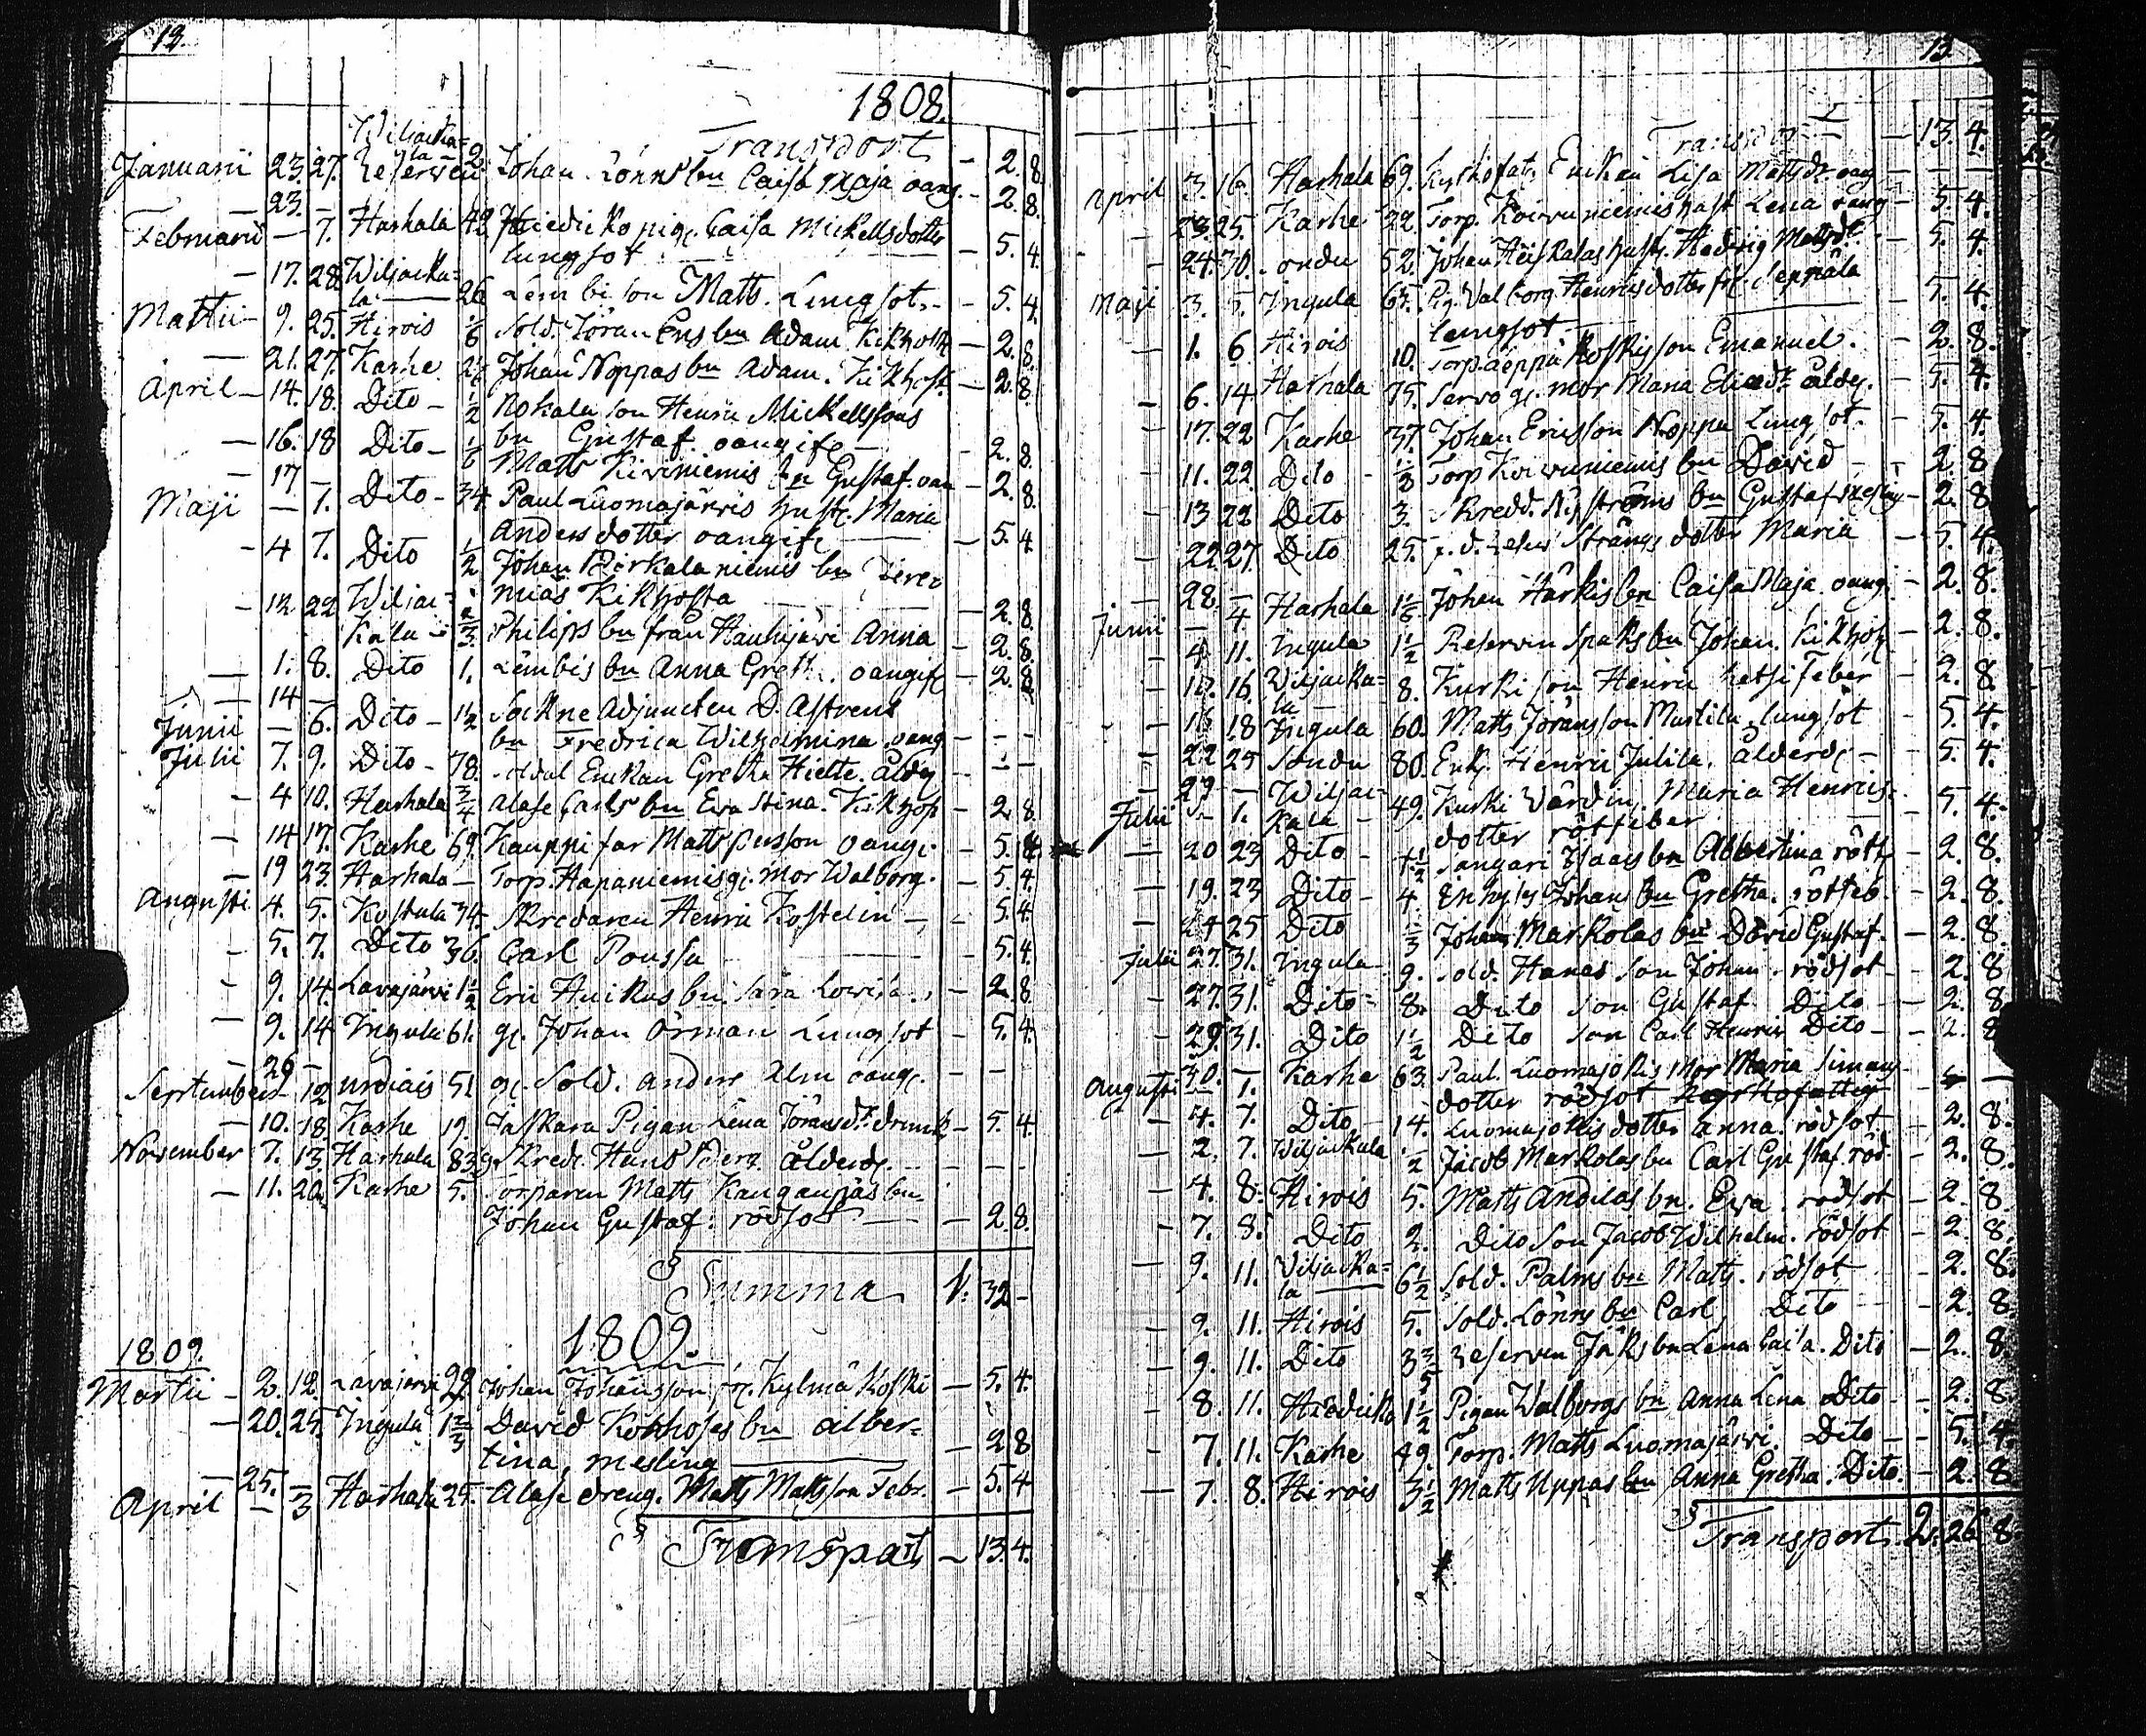 13.
1808.
Transport
Januarii 23. 27. Wiljacka=la 2 Johan Lönns bn Caisa Maja oang. - 2. 8.
- 23. - - 2. 8.
Februarii - 7. Harhala 42 Hiedicko pig. Caisa Mickellsdotter
lungsot - 5. 4.
- 17. 28 Wiljacka=
la 26 Lembi son Matts. Lungsot. - 5. 4.
Martii - 9. 25. Hirois 1/6 Sold. Jöran Ers bn Adam Kikhosta - 2. 8.
- 21. 27. Karhe Johan Noppas bn Adam. Kikhost - 2. 8.
April - 14. 18. Dito - 1/2 Rokala son Henric Mickellssons
bn Gustaf oangife - 2. 8.
- 16. 18 Dito - 1/6 Matts Kiviniemis bn Gustaf. oan - 2. 8.
- 17 -
Maji - 7. Dito - 34 Paul Luomajärvis hust. Maria
Andersdotter oangife - 5. 4
- 4 7. Dito 1/2 Johan Pirkalaniemis bn Jere=
mias Kikhosta - 2. 8.
- 12 22 Wiljac=
kala 2/3 Philips bn från Kauhijärvi Anna - 2. 8.
- 1. 8. Dito 1. Lembis bn Anna Greth. oangife - 2. 8.
- 14 -
Junii - 6. Dito - 1 1/2 Sockne Adjuncten D. Astrens
bn Fredrica Wilhelmina oang - - -
Julii 7. 9. Dito - 78. Enckan Gretha Hiette. ålder - - -
- 4 10. Harhala 3/4 Alase Carls bn Ewa Stina. Kikhos - 2 8
- 14 17. Karhe 69. Kauppi far Matts Persson oangi. - 5. 4.
- 19 23. Harhala - Torp. Hapaniemis g. mor Walborg. - 5. 4
Augusti 4. 5. Kostula 34. Skredaren Henric Kostelin - 5. 4
- 5. 7. Dito 36. Carl Poussu - 5. 4.
- 9. 14. Lavajärvi 1 1/2 Eric Huikus bn. Sara Lovisa. - 2. 8
- 9. 14 Ingula 61. g. Johan Örman Lungsot - 5. 4.
- 26 -
September - 12 51 g. Sold. Anders Alm oangi. - -
- 10. 18. Karhe 19. Jaskara Pigan Lena Jöransdr. drunk - 5. 4
November 7. 13. Harhala 83 g. Skred. Hans Berg ålderd. - - -
- 11. 20. Karhe 5. Torparen Matts Kangaspäs bn
Johan Gustaf: rödsot - 2. 8.
Summa 1. 32 -
1809.
1809.
Martii - 2. 12. Lavajärvi 22 Johan Johansson frg. Kylmä Koski - 5. 4.
- 20. 25. Ingula 1 2/3 David Kosthoses bn Alber=
tina, mesling - 2 8
- 25. -
April - 3 Harhala 25. Alase dreng. Matts Mattsson Febr. - 5. 4
Transport - 13. 4.
13.
Transport - 13. 4.
April 3. 16. Harhala 69. Kyrkofat. Enckan Lisa Mattsdr. oang - - -
- 23. 25. Karhe 22. Torp. Koivuniemis hust Lena oang - 5. 4.
- 24. 30. 52. Johan Heiskalas hust. Hedvig Mattsdr. - 5. 4.
Maji 3. 5. Ingula 65. Pig. Walborg Henricsdotter fr. Seppälä
lungsot - 5. 4.
- 1. 6. Hirois 10. Torp. Seppä Koskis son Emanuel. - 2. 8.
- 6. 14 Harhala 75. Servo g. mor Maria Eliædr. ålder. - 5. 4.
- 17. 22 Karhe 37. Johan Ericsson Noppa Lungsot. - 5. 4.
- 11. 22. Dito - 1/3 Torp Koivuniemis bn David - 2. 8
- 13 22 Dito 3. Skredd. Nyströms bn Gustaf mesling - 2. 8
- 22 27. Dito 25. Strångs dotter Maria - 5. 4.
- 28. -
Junii - 4 Harhala 1 1/6 Johan Härkis bn Caisa Maja oang - 2. 8.
- 4. 11. Ingula 1 1/2 Reserven Spaks bn Johan. Kikhos - 2. 8.
- 16. Wiljacka=
la 8. Kurki son Henric hetsi feber - 2. 8.
- 18 Ingula 60. Matts Jöransson Mustila lungsot - 5. 4.
- 22 25 80. Enk. Henric Julita. ålderd. - 5. 4.
- 29 -
Julii - 1. Wiljac=
kala 49. Kurki Värdin. Maria Henrics
dotter rötfeber - 5. 4.
- 20 23 Dito - 1/2 Sangari Isaacs bn Albertina rötf - 2. 8.
- 19. 23 Dito - 4 Johans bn Gretha. rötfeb. - 2. 8.
- 24 25 Dito 1/3 Johan Markolas bn David Gustaf. - 2. 8.
Julii 27. 31. Ingula 9. Sold. Hanes son Johan. rödsot - 2. 8
- 27. 31. Dito - 8. Dito son Gustaf. Dito - 2. 8
- 29. 31. Dito 1 1/2 Dito son Carl Henric Dito - 2. 8
- 30. -
Augusti - 1. Karhe 63. Paul. Luomajokis Mor Maria Simons
dotter rödsot - -
- 4. 7. Dito - 14. Luomajokis dotter Anna. rödsot. - 2. 8.
- 2. 7. Wiljackala 1/2 Jacob Markolas bn Carl Gustaf. röd - 2. 8.
- 4. 8. Hirois 5. Matts Andilas bn. Ewa. rödsot - 2. 8
- 7. 8. Dito 2. Dito son Jacob Wilhelm. rödsot - 2. 8.
- 9. 11. Wiljacka=
la 6 1/2 Sold. Palms bn Matts. rödsot - 2. 8.
- 9. 11. Hirois 5. Sold. Lönns bn Carl, Dito - 2. 8
- 9. 11. Dito 3 Reserven Jäks bn Lena Caisa. Dito - 2. 8.
- 8. 11. Hiedicko 1 1/2 Pigan Walborgs bn Anna Lena Dito - 2. 8
- 7. 11. Karhe 49. Torp. Matts Luomajärvi. Dito - 5. 4.
- 7. 8. Hirois 3 1/2 Matts Uppas bn Anna Gretha. Dito. - 2. 8
Transport 2. 26. 8.